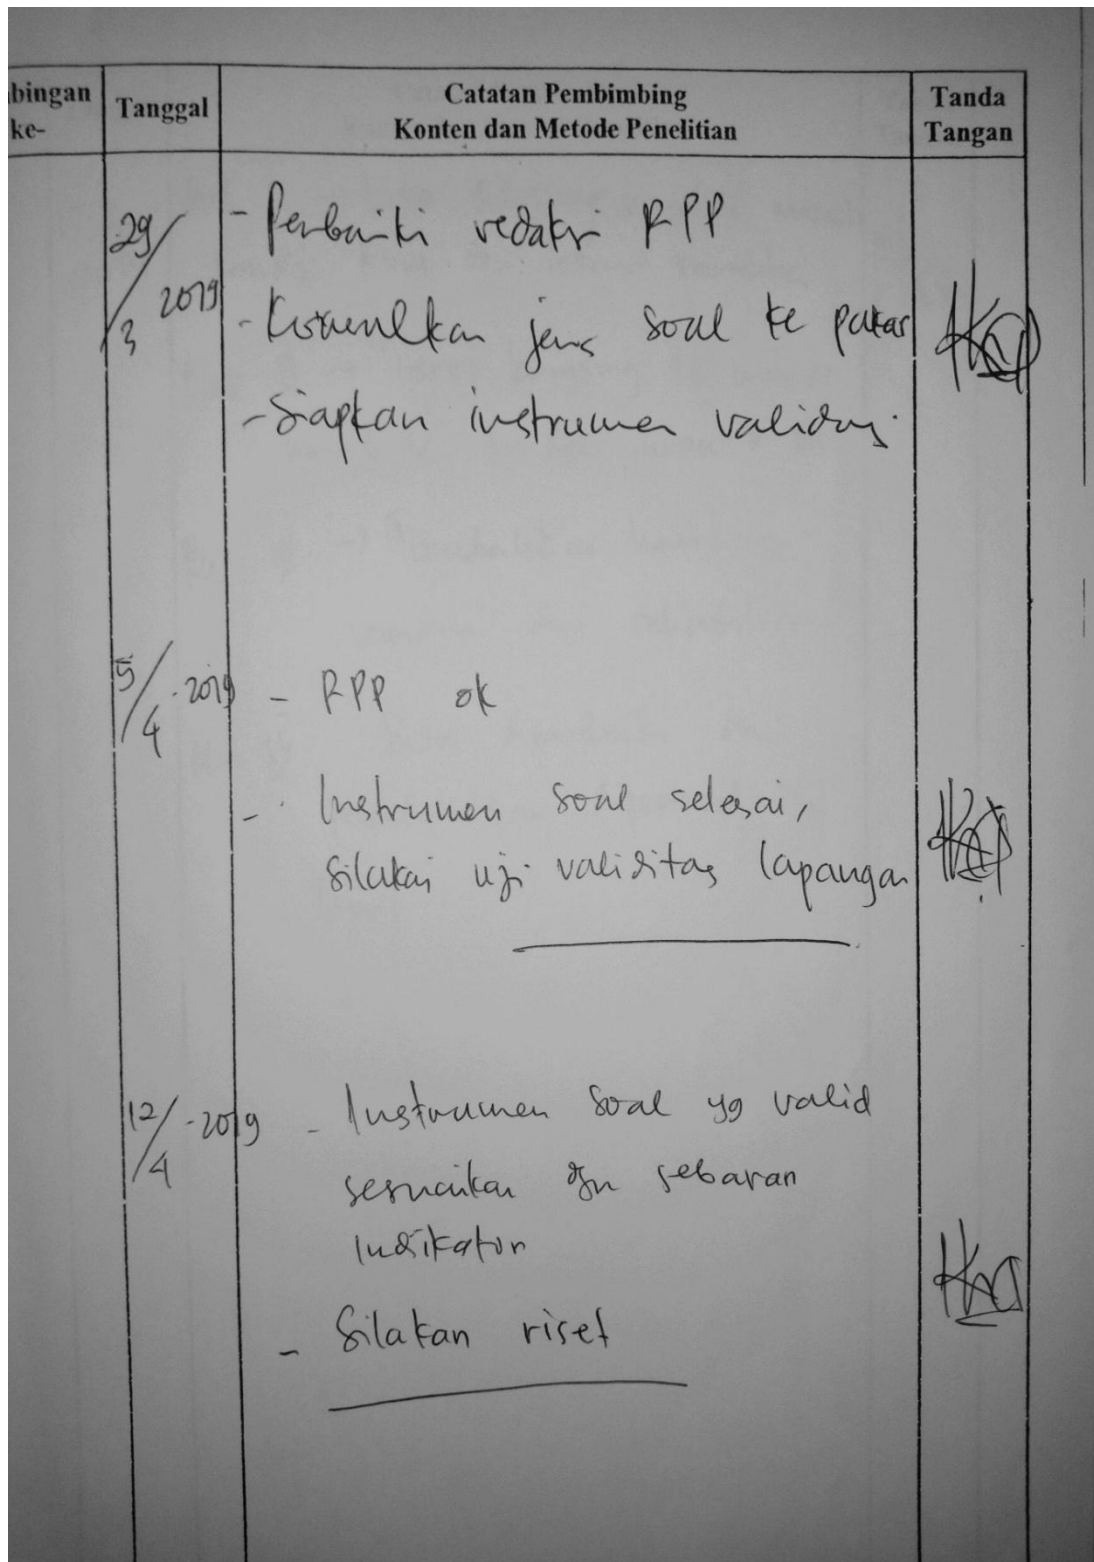 bingan
ke-
Tanggal
Catatan Pembimbing
Konten dan Metode Penelitian
Tanda
Tangan
29/3 2019
- Perbaiki redaksi RPP
- Konsulkan jenis soal ke pakar
- Siapkan instrumen validasi.
5/4-2019
- RPP ok
- Instrumen soal selesai,
silakan uji validitas lapangan
12/4-2019
- Instrumen soal yg valid
sesuaikan dgn sebaran
indikator
- Silakan riset